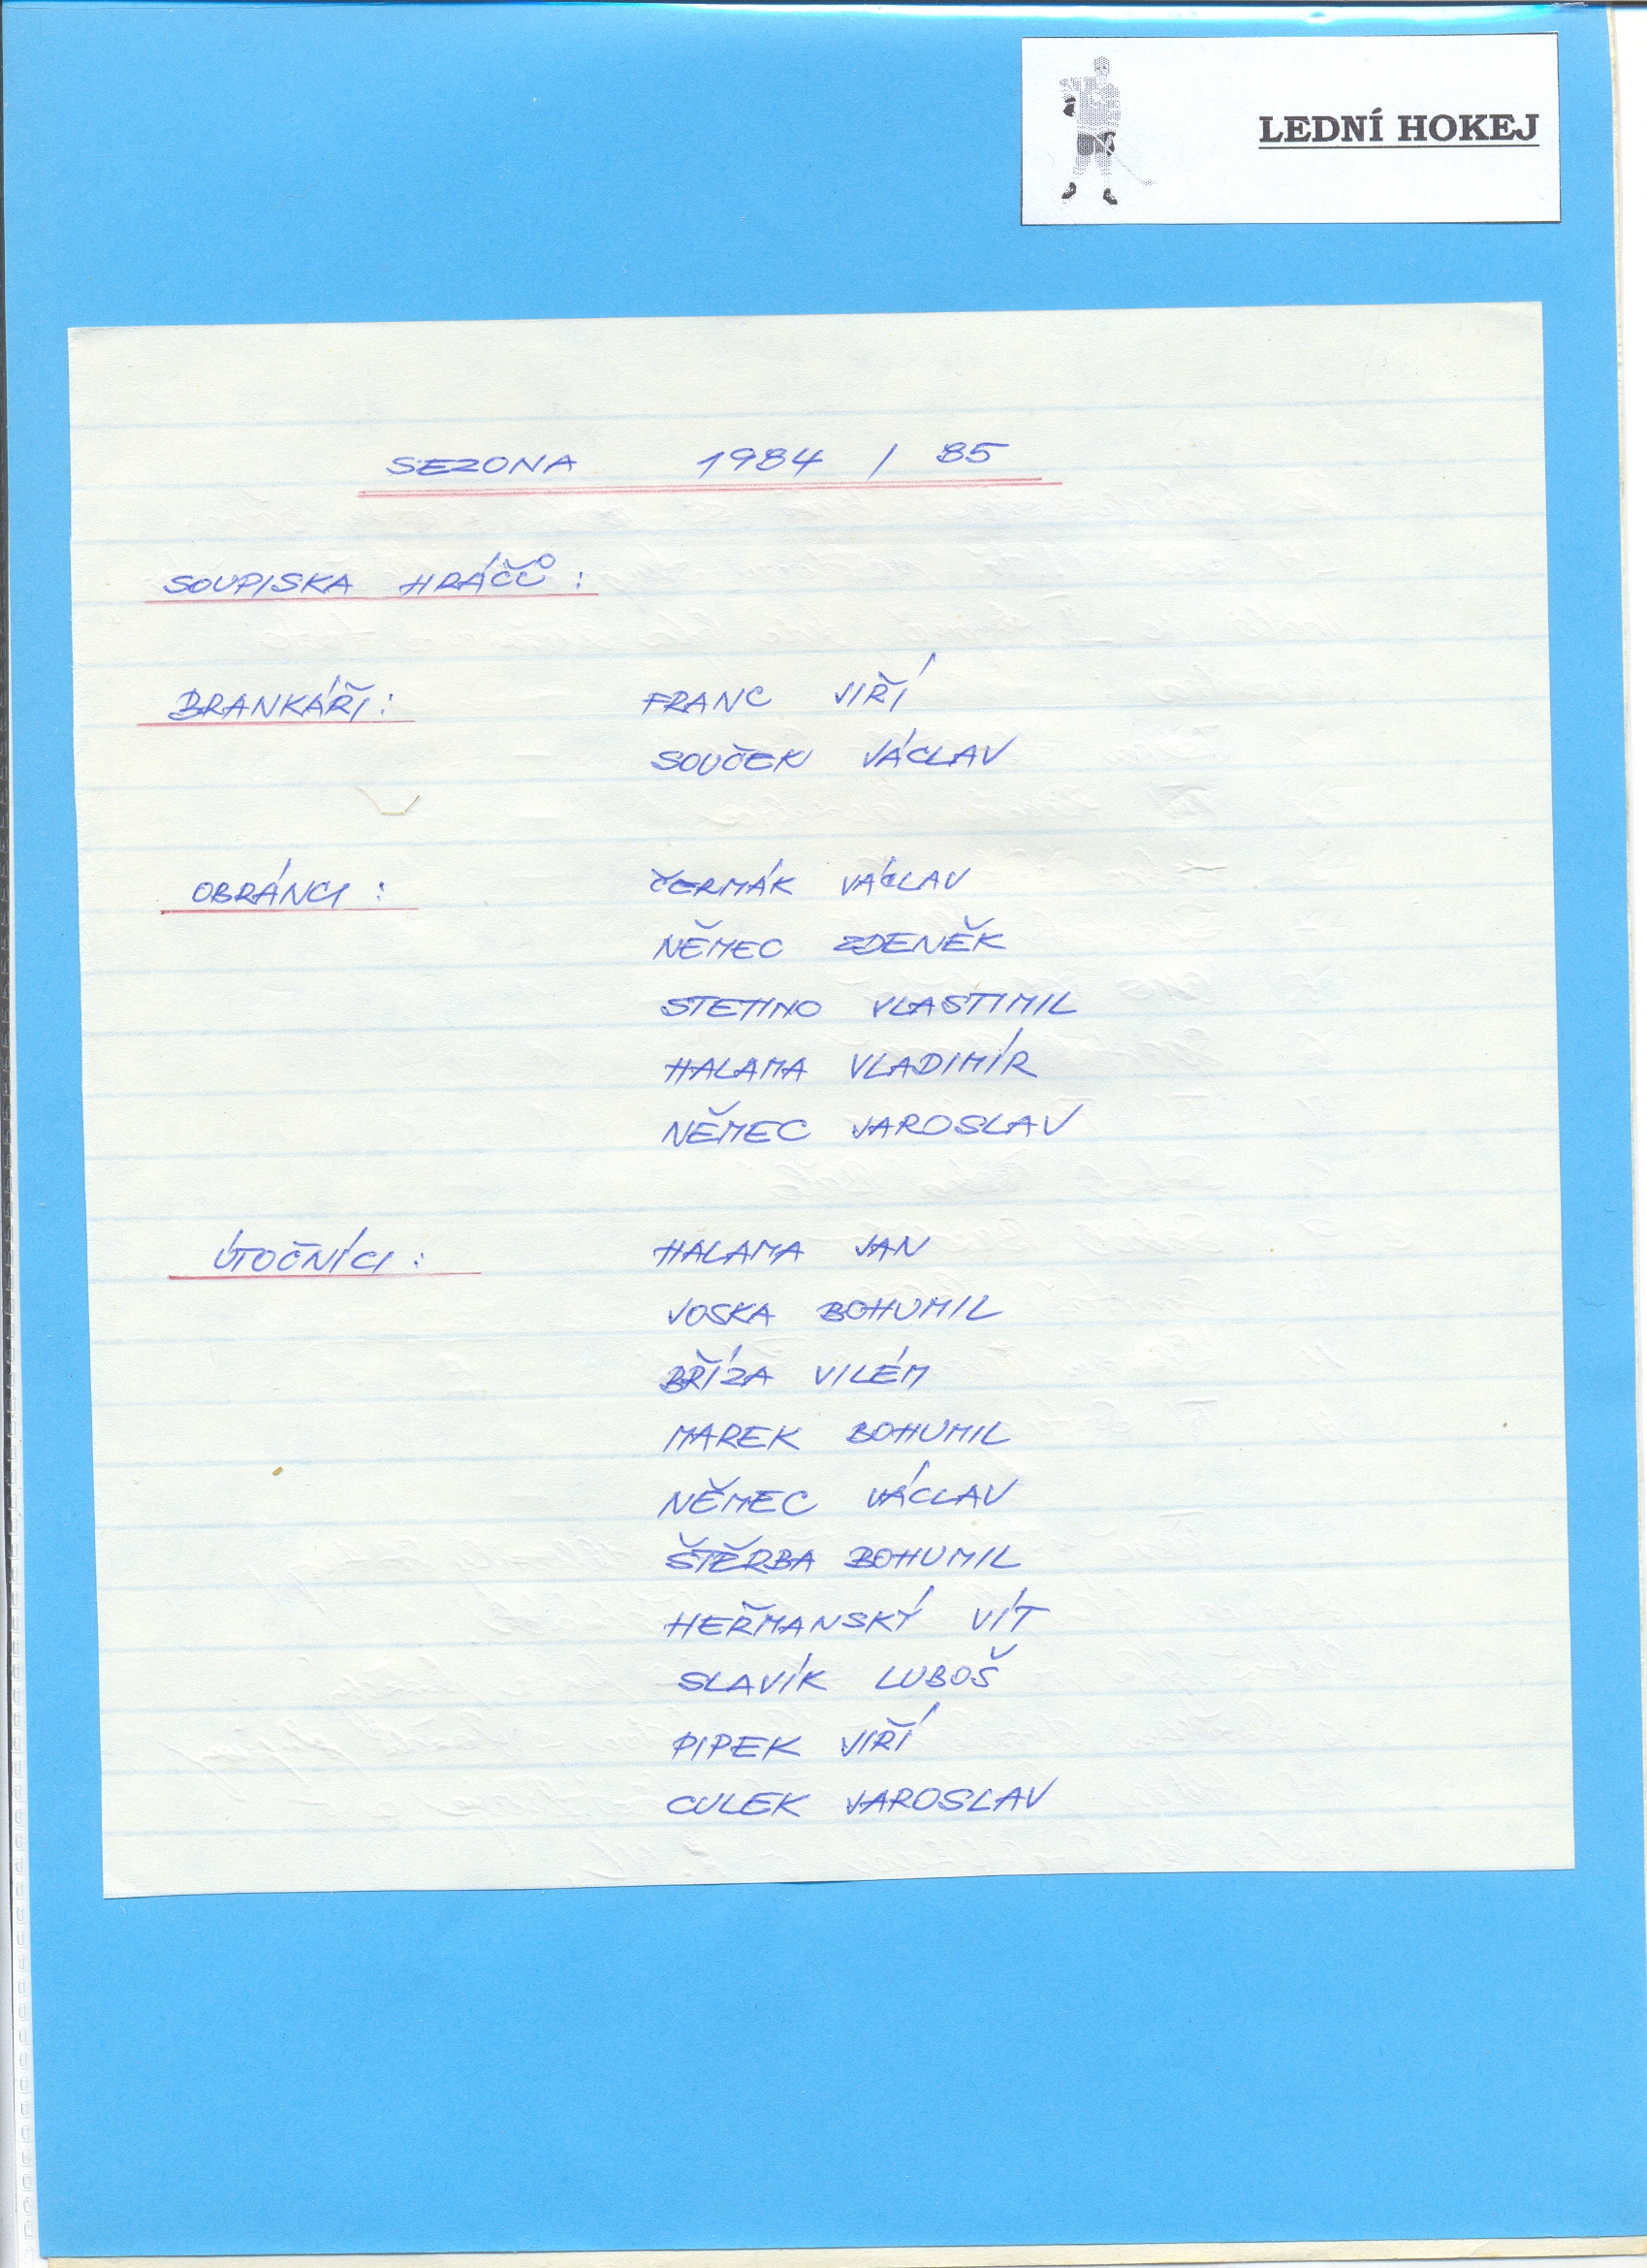 LEDNÍ HOKEJ
SEZONA 1984 / 85
SOUPISKA HRÁČŮ :
BRANKÁŘI: FRANC JIŘÍ
SOUČEK VÁCLAV
OBRÁNCI : ČERMÁK VÁCLAV
NĚMEC ZDENĚK
STETINO VLASTIMIL
HALAMA VLADIMÍR
NĚMEC JAROSLAV
ÚTOČNÍCI : HALAMA JAN
JOSKA BOHUMIL
BŘÍZA VILÉM
MAREK BOHUMIL
NĚMEC VÁCLAV
ŠTĚRBA BOHUMIL
HEŘMANSKÝ VÍT
SLAVÍK LUBOŠ
PIPEK JIŘÍ
CULEK JAROSLAV